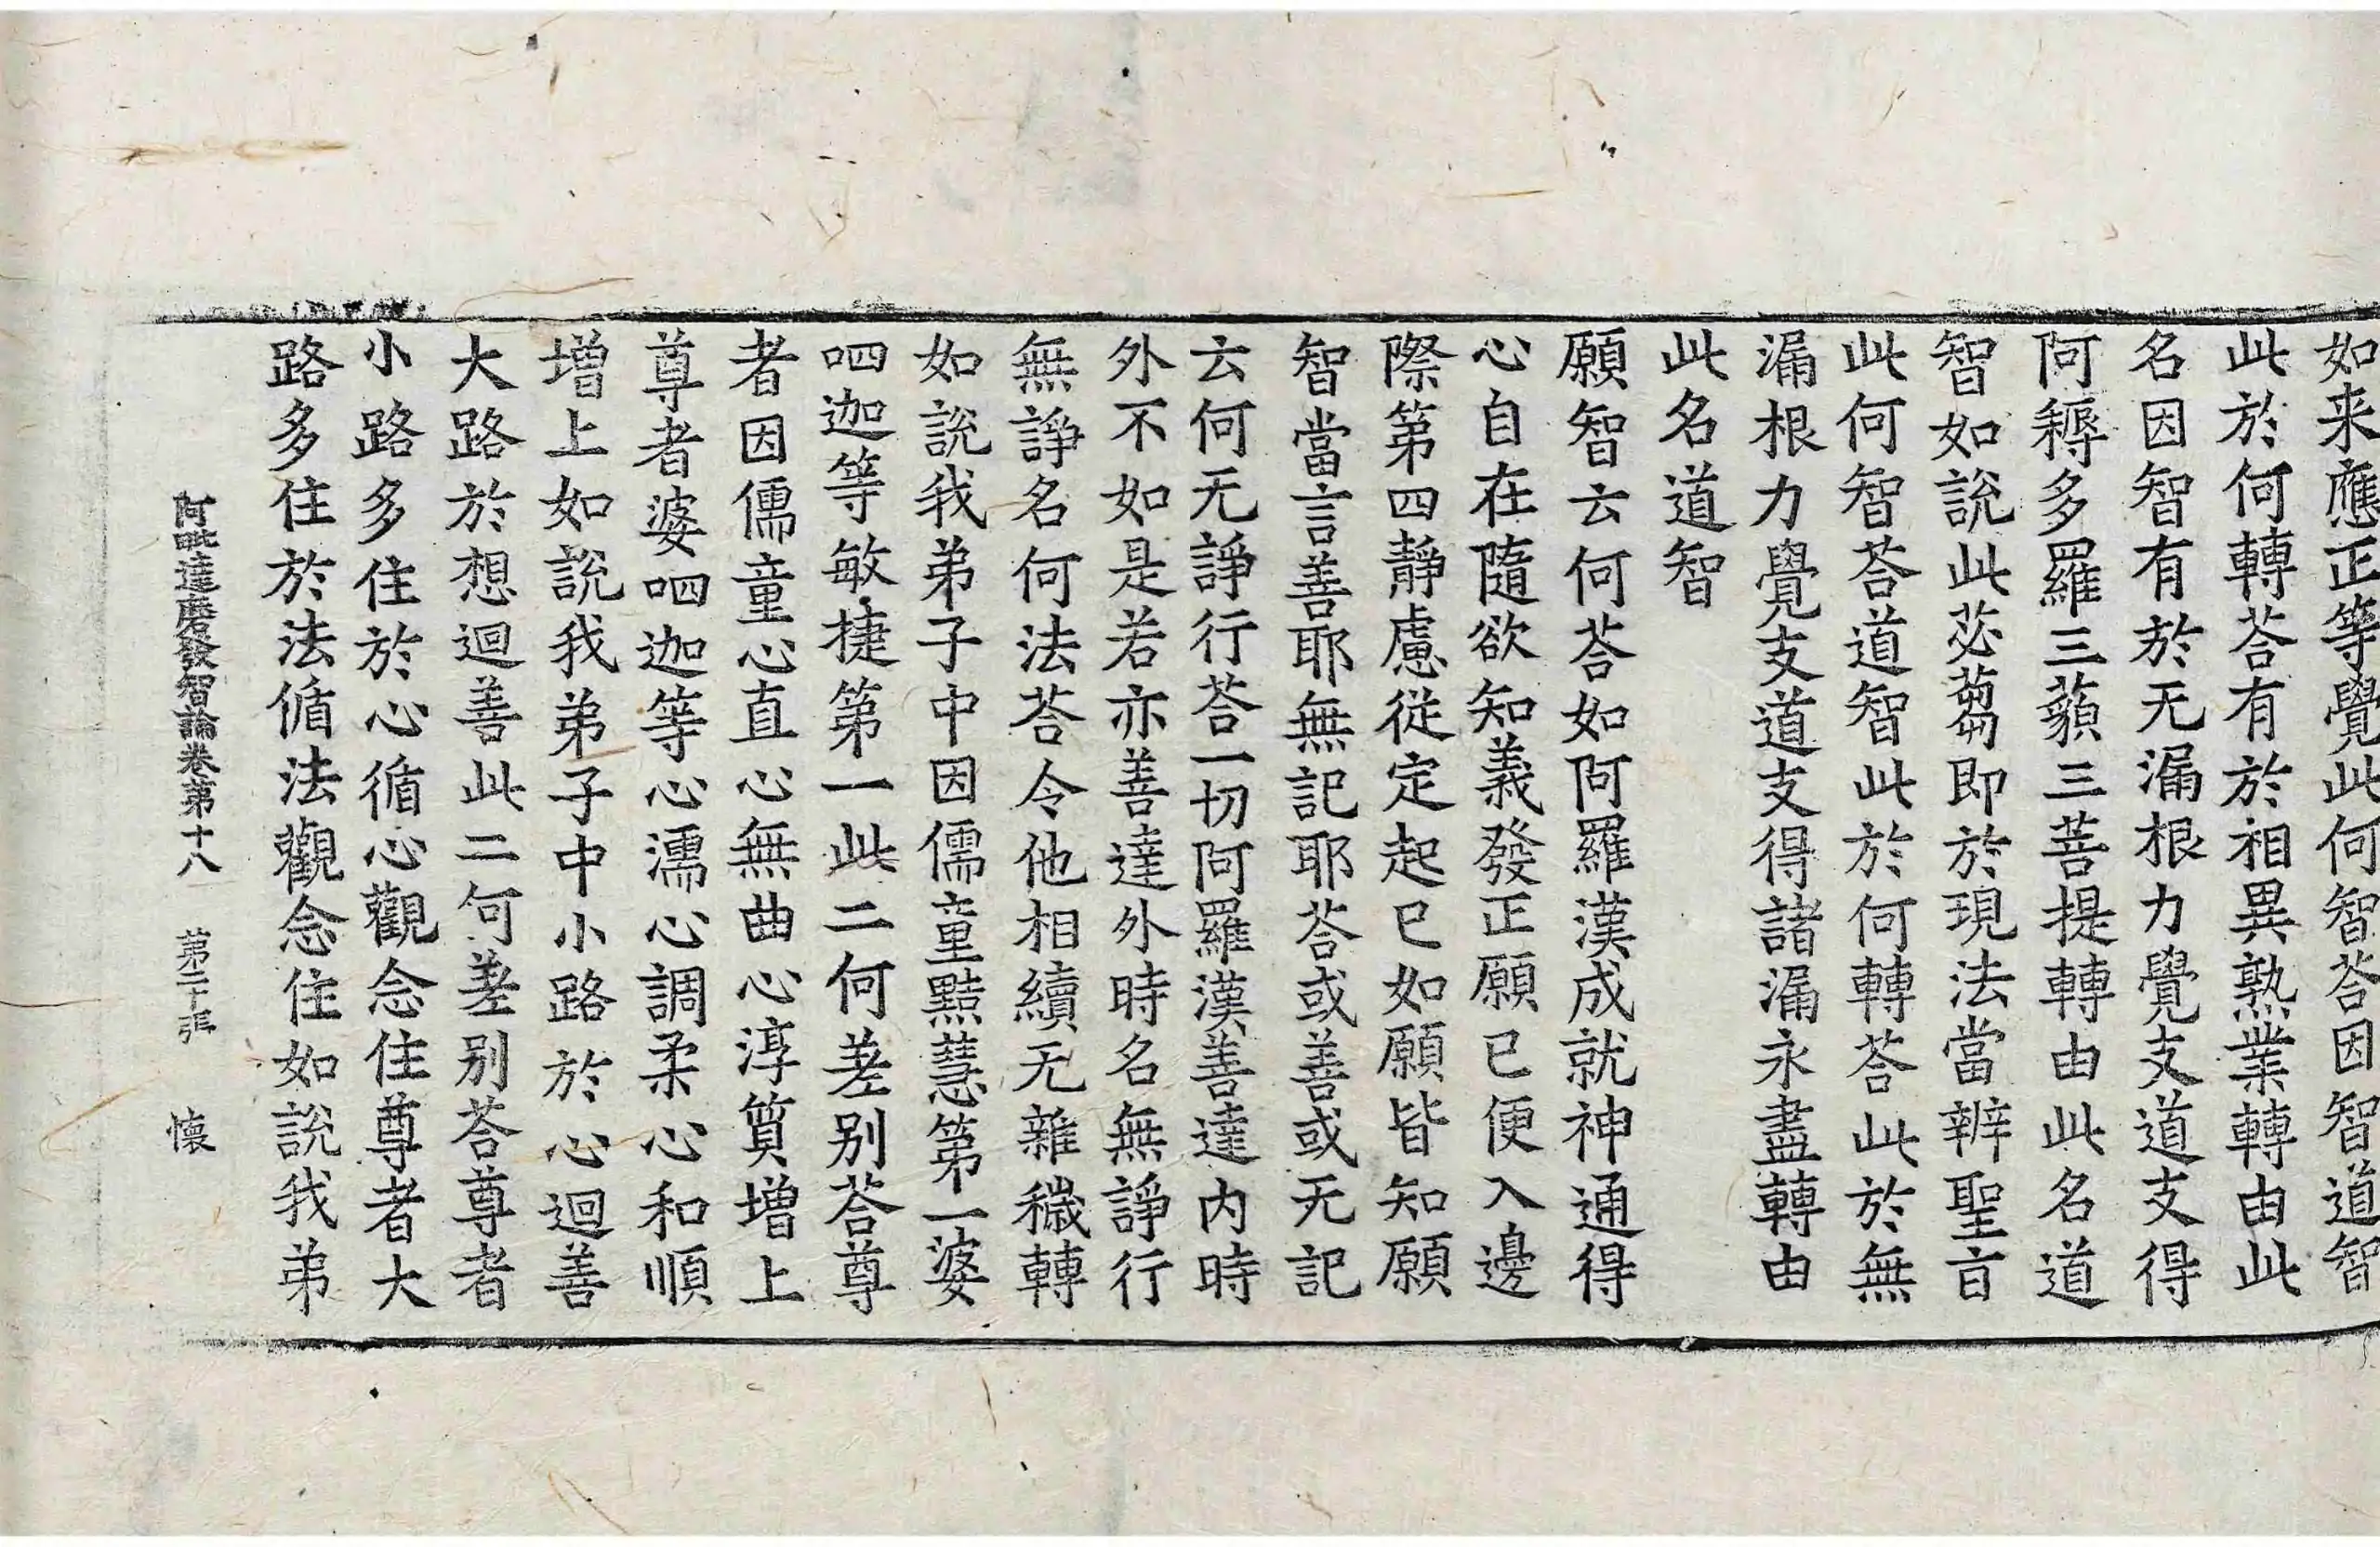 如来應正等覺此何智荅因智道智
此於何轉荅有於相異熟業轉由此
名因智有於无漏根力覺支道支得
阿耨多羅三藐三菩提轉由此名道
智如說此苾芻即於現法當辨聖旨
此何智荅道智此於何轉荅此於無
漏根力覺支道支得諸漏永盡轉由
此名道智
願智云何荅如阿羅漢成就神通得
心自在隨欲知義發正願已便入邊
際第四靜慮從定起已如願皆知願
智當言善耶無記耶荅或善或无記
云何无諍行荅一切阿羅漢善達内時
外不如是若亦善達外時名無諍行
無諍名何法荅令他相續无雜穢轉
如說我弟子中因儒童黠慧第一婆
呬迦等敏捷第一此二何差别荅尊
者因儒童心直心無曲心淳質增上
尊者婆呬迦等心濡心調柔心和順
增上如說我弟子中小路於心迴善
大路於想迴善此二何差别荅尊者
小路多住於心循心觀念住尊者大
路多住於法循法觀念住如說我弟
阿毗達磨發智論卷第十八 第二十張 懷